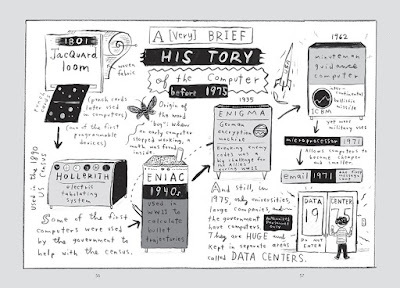 A [Very] BRIEF
HISTORY
of the Computer
before 1975
1801
JacQuard
loom
woven
fabric
punch
(punch cards
later used
in computers)
(one of the first
programmable
devices)
used in the 1890
US census
HOLLERITH
electric
tabulating
system
Some of the first
computers were used
by the government to
help with the census.
Origin of the
word "bug": when
an early computer
stopped working, a
moth was found
inside
ENIAC
1940s
used in
WWII to
calculate
bullet
trajectories
1939
ENIGMA
German
encryption
machine
Breaking enemy
codes was a
big challenge for
the allies
during WWII
And still, in
1975, only universities,
large companies, and
the government
have computers.
They are HUGE and
kept in separate areas
called DATA CENTERS.
Authorized
Personnel
Only
1962
minuteman
guidance
computer
inter-
continental
ballistic
missile
ICBM
yet more
military uses
microprocessor 1971
Allows computers to
become cheaper
and smaller
email 1971
DATA CENTER
19
DO NOT
ENTER
56
57